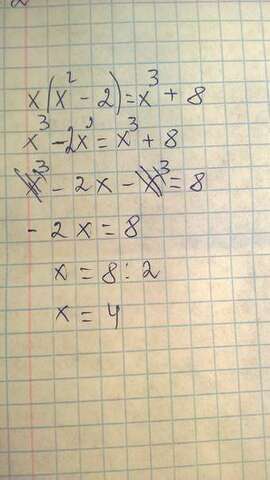 x(x² - 2) = x³ + 8
x³ - 2x² = x³ + 8
x³ - 2x - x³ = 8
- 2x = 8
x = 8 : 2
x = 4